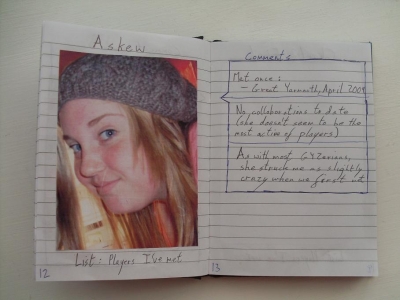 Askew
List: Players I've met
12
Comments
Met once:
- Great Yarmouth, April 2009
No collaborations to date
(she doesn't seem to be the
most active of players)
As with most GYZerians,
she struck me as slightly
crazy when we first
13